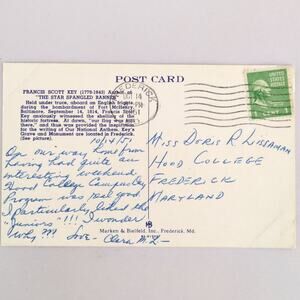 POST CARD
FRANCIS SCOTT KEY (1779-1843) Author of
"THE STAR SPANGLED BANNER"
Held under truce, aboard an English frigate
during the bombardment of Fort McHenry,
Baltimore, September 14, 1814, Francis Scott
Key anxiously witnessed the shelling of the
historic fortress. At dawn, "our flag was still
there," and thus was provided the inspiration
for the writing of Our National Anthem. Key's
Grave and Monument is located in Frederick.
(See picture).
FREDERICK
OCT 14
PM
10/14/51
On our way home from
having had quite an
interesting weekend.
Hood College Campusday
Program was real good.
I particularly liked the
"Juniors"!!! I wonder
why??? Love- Clara M. L.-
Miss Doris R. Lissaman
Hood College
Frederick
Maryland
Marken & Bielfeld, Inc., Frederick, Md.